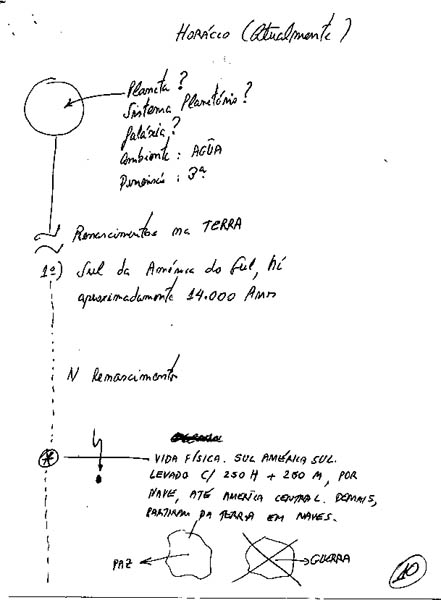 HORÁCIO (Atualmente)
Planeta?
Sistema Planetário?
Galáxia?
Ambiente: AGÛA
Dimensão: 3ª
Renascimentos na TERRA
1º) Sul da América do Sul, há
aproximadamente 14.000 Anos
N Renascimentos
VIDA FÍSICA. SUL AMÉRICA SUL.
LEVADO C/ 250 H + 260 M, POR
NAVE, ATÉ AMERICA CENTRAL. DEMAIS,
PARTIRAM DA TERRA EM NAVES.
PAZ
GUERRA
10